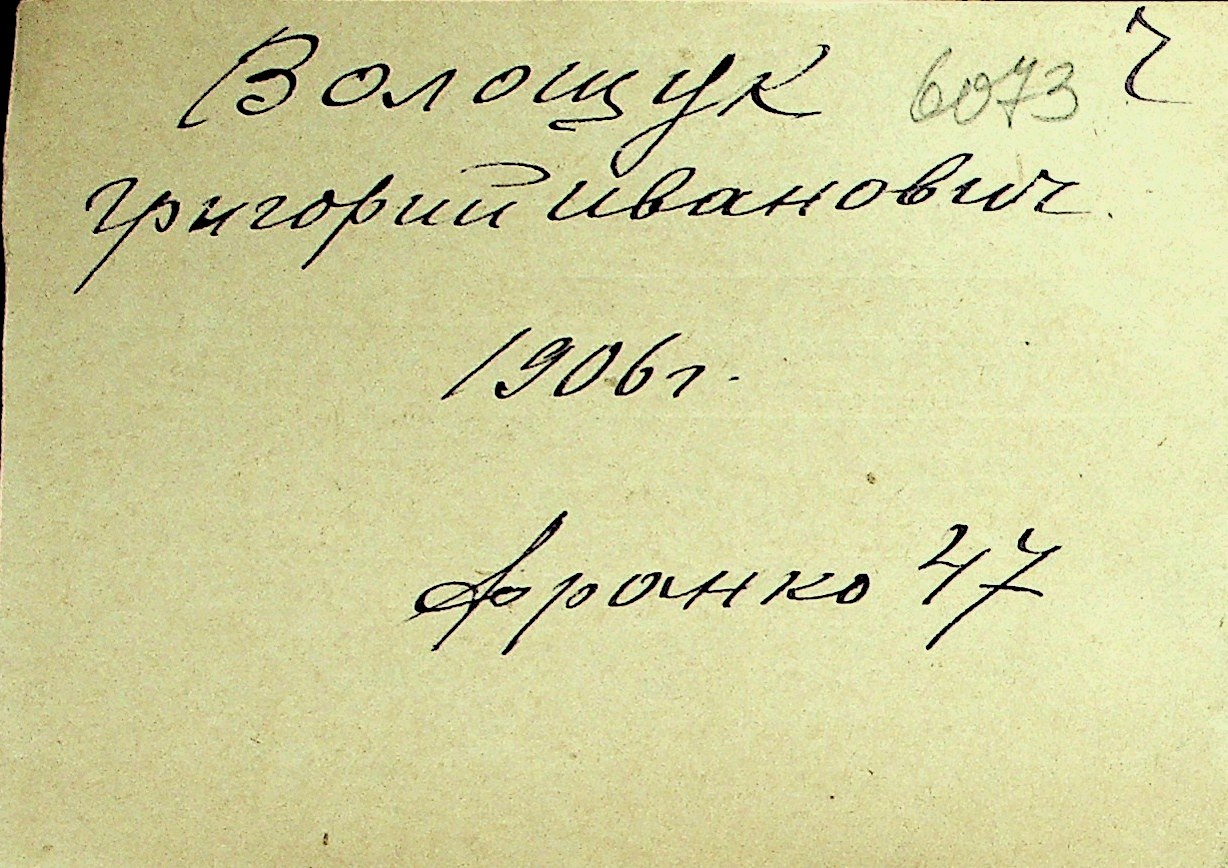 Волощук 6073 ч
Григорий Иванович
1906г.
Франко 47